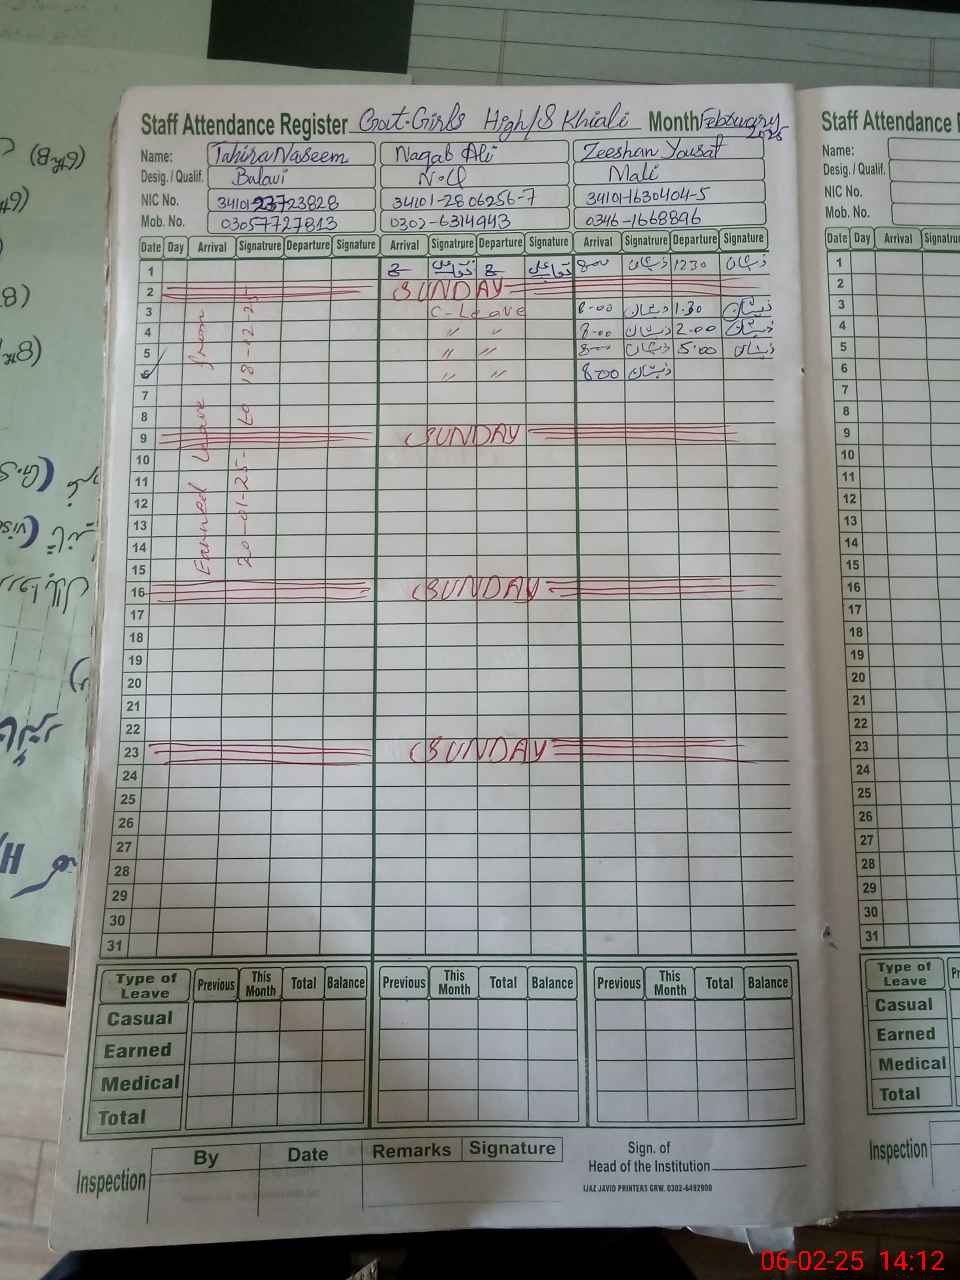 Staff Attendance Register Govt-Girls High/S Khiali Month February 2025
Name: Tahira Naseem Naqab Ali Zeeshan Yousaf
Desig. / Qualif. Balavi N.Q Mali
NIC No. 34101-23723828 34101-2806256-7 34101-1630404-5
Mob. No. 03057727813 0302-6314943 0346-1668896
Date Day Arrival Signatrure Departure Signature Arrival Signatrure Departure Signature Arrival Signatrure Departure Signature
1 8-00 ذیشان 1230 ذیشان
2 SUNDAY
3 C-Leave 8-00 ذیشان 1.30 ذیشان
4 〃 〃 8-00 ذیشان 2.00 ذیشان
5 〃 〃 8-00 ذیشان 5.00 ذیشان
6 〃 〃 8-00 ذیشان
7
8
9 SUNDAY
10
11
12
13
14
15
16 SUNDAY
17
18
19
20
21
22
23 SUNDAY
24
25
26
27
28
29
30
31
Earned Leave from
20-01-25- to 18-12-25-
Type of Leave Previous This Month Total Balance Previous This Month Total Balance Previous This Month Total Balance
Casual
Earned
Medical
Total
Inspection By Date Remarks Signature
Sign. of
Head of the Institution
IJAZ JAVID PRINTERS GRW. 0302-6492900
Staff Attendance R
Name:
Desig. / Qualif.
NIC No.
Mob. No.
Date Day Arrival Signatrure
1
2
3
4
5
6
7
8
9
10
11
12
13
14
15
16
17
18
19
20
21
22
23
24
25
26
27
28
29
30
31
Type of Leave
Casual
Earned
Medical
Total
Inspection
06-02-25 14:12